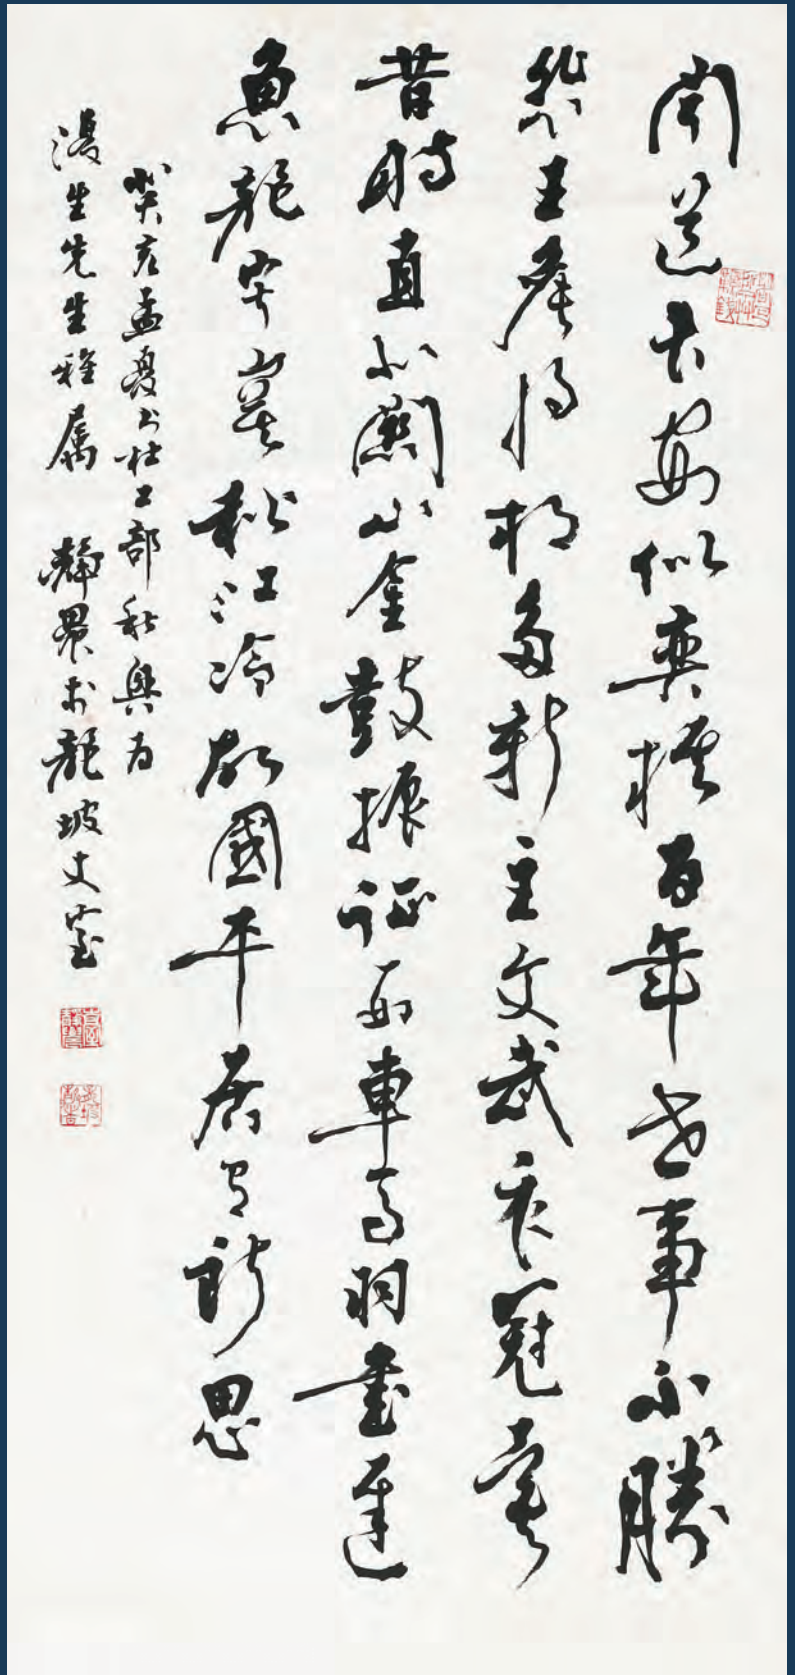 聞道長安似奕棋百年世事不勝
悲王侯將相多新主文武衣冠異
昔時直北關山金鼓振征西車馬羽書遲
魚龍寂寞秋江冷故國平居有所思
癸亥孟夏書杜工部秋興為
漫生先生雅屬 靜農於龍坡丈室